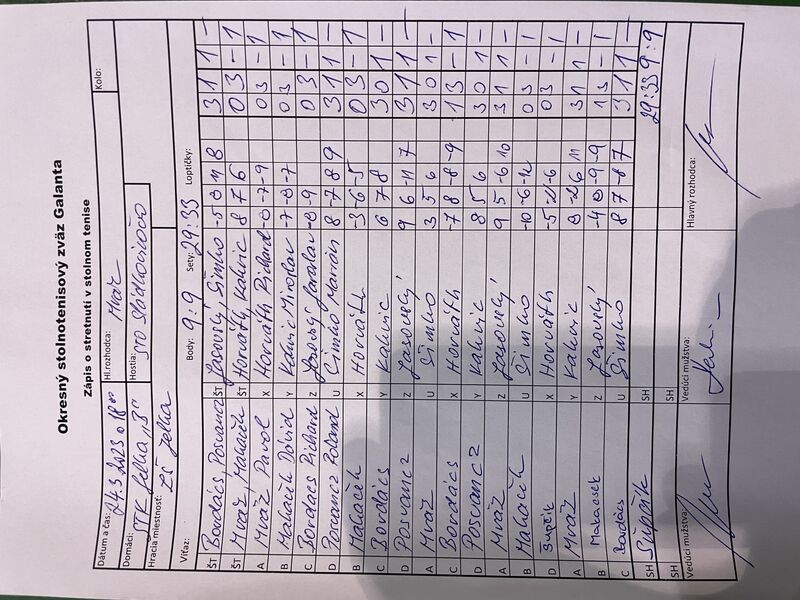 Okresný stolnotenisový zväz Galanta
Zápis o stretnutí v stolnom tenise
Dátum a čas: 24.3.2023 o 18 00 Hl.rozhodca: Mráz Kolo:
Domáci: STK Jelka „B" Hostia: STO Sládkovičovo
Hracia miestnosť: ZŠ Jelka
Víťaz: Body: 9:9 Sety: 29:33 Loptičky:
ŠT Bordács, Posvancz ŠT Jasovský, Šimko -5 8 11 8 3 1 1 -
ŠT Mráz, Maháček ŠT Horváth, Kahvic 8 7 6 0 3 - 1
A Mráz Pavol X Horváth Richard -8 -7 -9 0 3 - 1
B Maháček Dávid Y Kahvic Miroslav -7 -8 -7 0 3 - 1
C Bordács Richard Z Jasovský Jaroslav -8 -9 0 3 - 1
D Posvancz Roland U Šimko Marián 8 -7 8 9 3 1 1 -
B Maháček X Horváth -3 -6 -5 0 3 - 1
C Bordács Y Kahvic 6 7 8 3 0 1 -
D Posvancz Z Jasovský 9 6 -11 7 3 1 1 -
A Mráz U Šimko 3 5 6 3 0 1 -
C Bordács X Horváth -7 8 -8 -9 1 3 - 1
D Posvancz Y Kahvic 8 5 6 3 0 1 -
A Mráz Z Jasovský 9 5 -6 10 3 1 1 -
B Maháček U Šimko -10 -6 -12 0 3 - 1
D X Horváth -5 -6 0 3 - 1
A Mráz Y Kahvic 3 1 1 -
B Maháček Z Jasovský -4 8 -9 -9 1 3 - 1
C Bordács U Šimko 8 7 -8 7 3 1 1 -
SH SH 29:33 9:9
SH SH
Vedúci mužstva: Vedúci mužstva: Hlavný rozhodca: